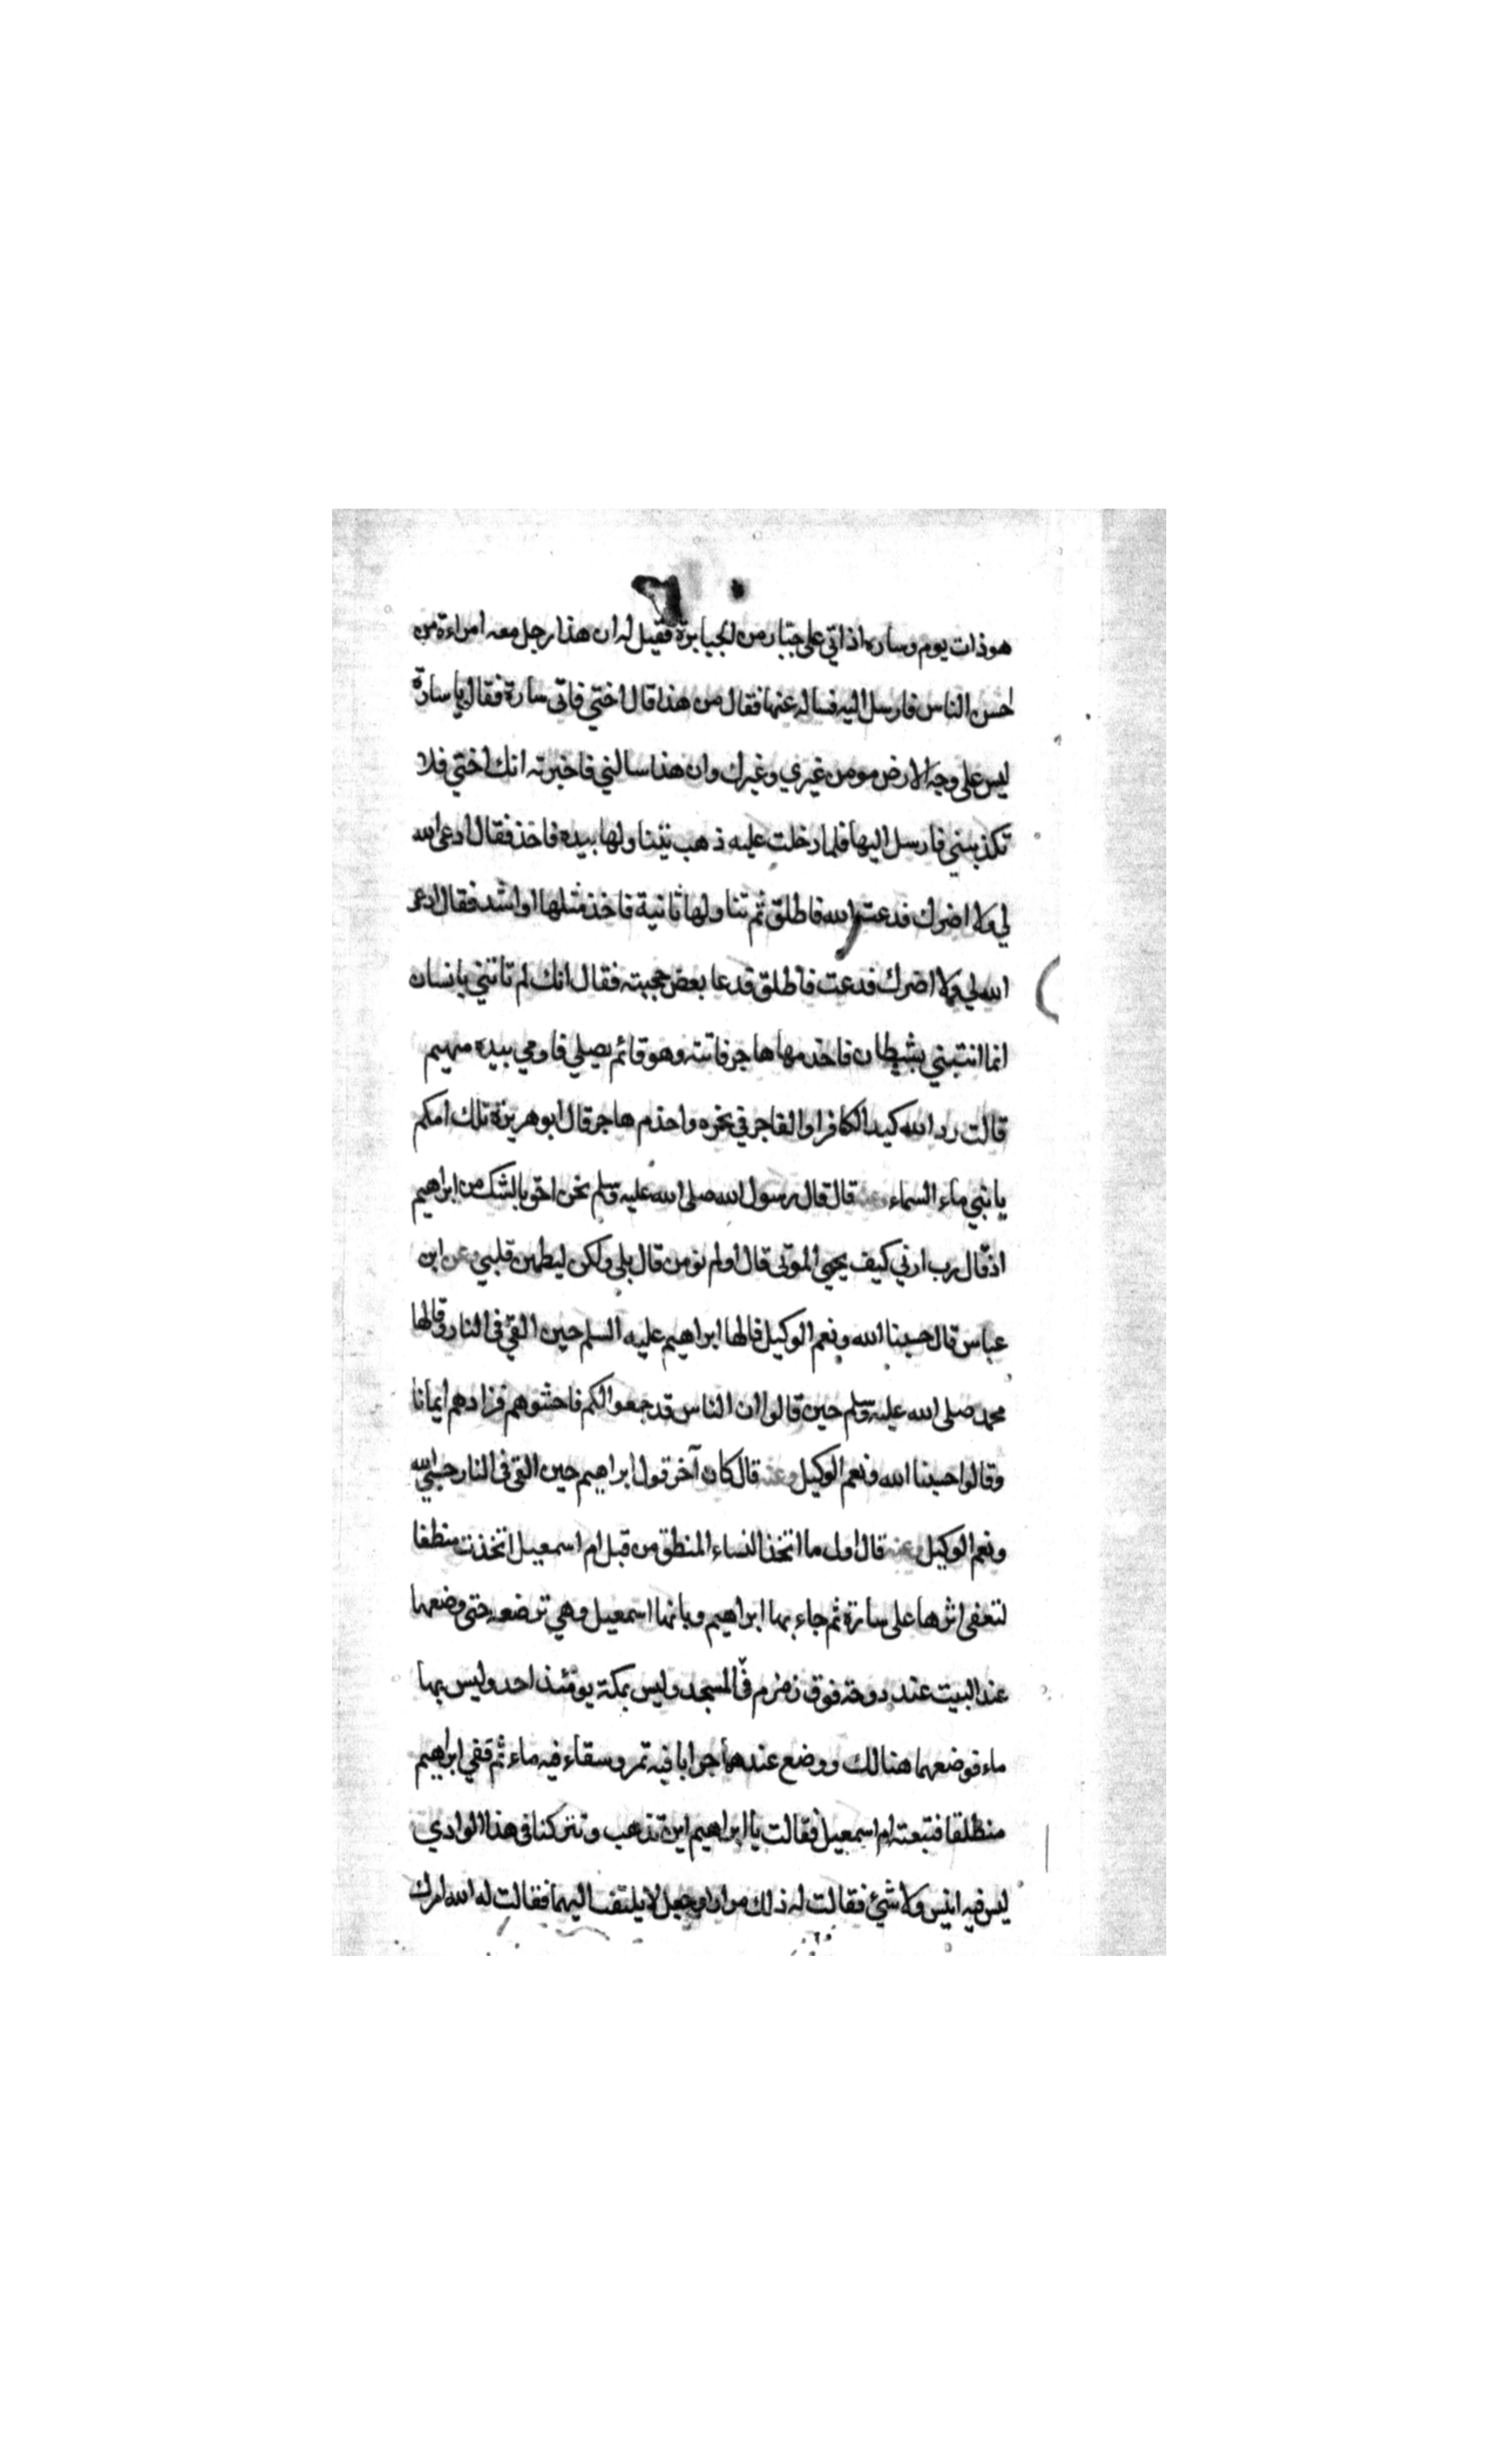 هو ذات يوم وساره اذ اتي على جبار من الجبابرة فقيل له ان هذا رجل معه امراءة من
احسن الناس فارسل اليه فساله عنها فقال من هذا قال اختي فاتى سارة فقال يا سارة
ليس على وجه الارض مومن غيري وغيرك وان هذا سالني فاخبرته انك اختي فلا
تكذبيني فارسل اليها فلما دخلت عليه ذهب يتناولها بيده فاخذ فقال ادعى الله
لي ولا اضرك فدعت الله فاطلق ثم تناولها ثانية فاخذ مثلها او اشد فقال ادعى
الله لي ولا اضرك فدعت فاطلق فدعا بعض حجبته فقال انك لم تاتني بانسان
انما اتيتني بشيطان فاخدمها هاجر فاتته وهو قائم يصلي فاومي بيده مهيم
قالت رد الله كيد الكافر او الفاجر في نحره واخدم هاجر قال ابو هريرة تلك امكم
يا بني ماء السماء عنه قال قال رسول الله صلى الله عليه وسلم نحن احق بالشك من ابراهيم
اذ قال رب ارني كيف يحيي الموتى قال اولم تومن قال بلى ولكن ليطمين قلبي عن ابن
عباس قال حسبنا الله ونعم الوكيل قالها ابراهيم عليه السلم حين القي فى النار وقالها
محمد صلى الله عليه وسلم حين قالوا ان الناس قد جمعوا لكم فاخشوهم فزادهم ايمانا
وقالوا حسبنا الله ونعم الوكيل وعنه قال كان آخر قول ابراهيم حين القي فى النار حسبي الله
ونعم الوكيل وعنه قال اول ما اتخذ النساء المنطق من قبل ام اسمعيل اتخذت منطقا
لتعفى اثرها على سارة ثم جاء بها ابراهيم وبابنها اسمعيل وهي ترضعه حتى وضعها
عند البيت عند دوحة فوق زمزم فى المسجد وليس بمكة يومئذ احد وليس بها
ماء فوضعهما هنالك ووضع عندهما جرابا فيه تمر وسقاء فيه ماء ثم قفي ابراهيم
منطلقا فتبعته ام اسمعيل فقالت يا ابراهيم اين تذهب وتتركنا فى هذا الوادي
ليس فيه انيس ولا شئ فقالت له ذلك مرارا وجعل لا يلتفت اليهما فقالت له الله امرك